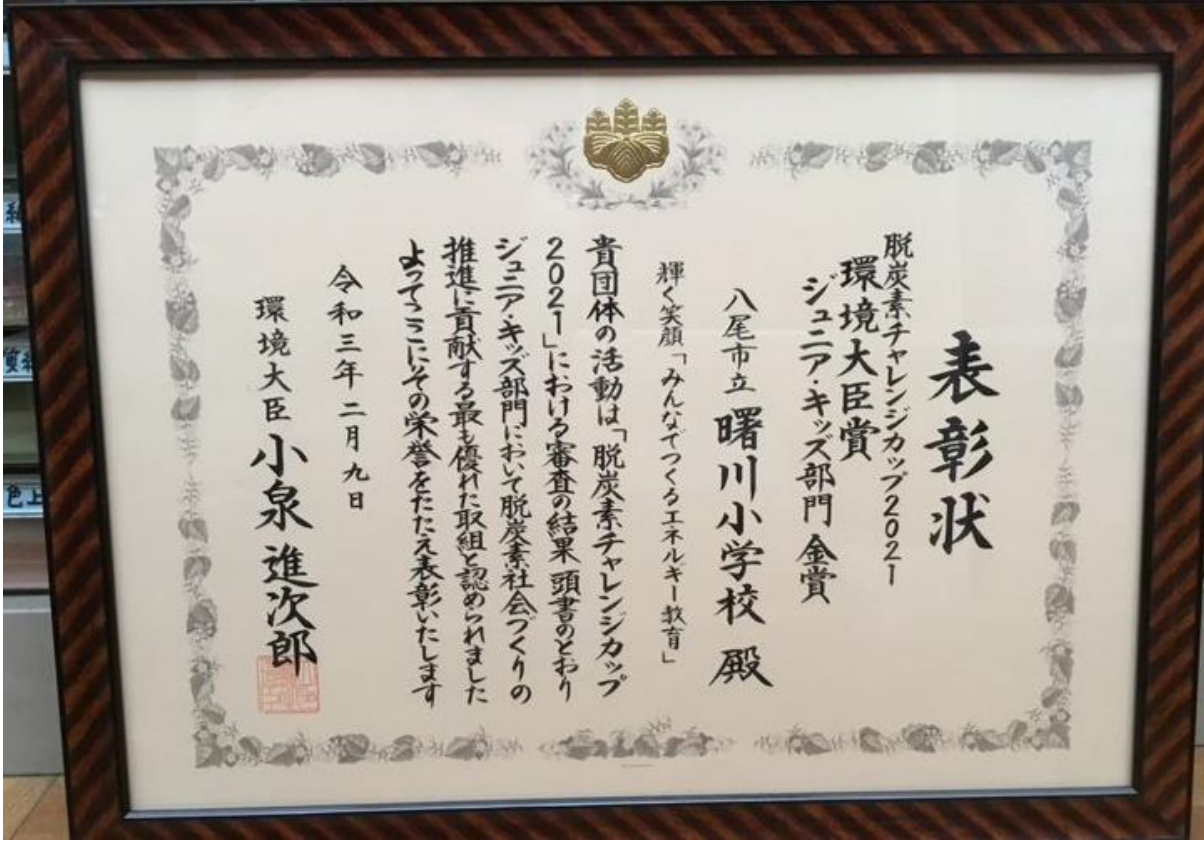 表彰状
脱炭素チャレンジカップ2021
環境大臣賞
ジュニア・キッズ部門 金賞
八尾市立 曙川小学校 殿
輝く笑顔「みんなでつくるエネルギー教育」
貴団体の活動は「脱炭素チャレンジカップ
2021」における審査の結果 頭書のとおり
ジュニア・キッズ部門において脱炭素社会づくりの
推進に貢献する最も優れた取組と認められました
よってここにその栄誉をたたえ表彰いたします
令和三年二月九日
環境大臣 小泉進次郎
色上